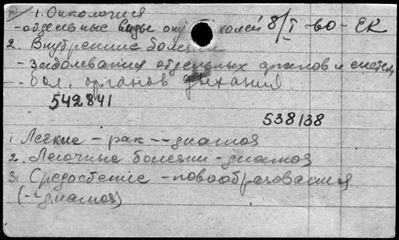 1. Онкология
- отдельные виды опухолей 8/I-60-ЕК
2. Внутренние болезни
- заболевания отдельных органов и систем
- бол. органов дыхания
542841
538138
1. Легкие - рак -- диагноз
2. Легочные болезни - диагноз
3. Средостение - новообразования
(- диагноз)